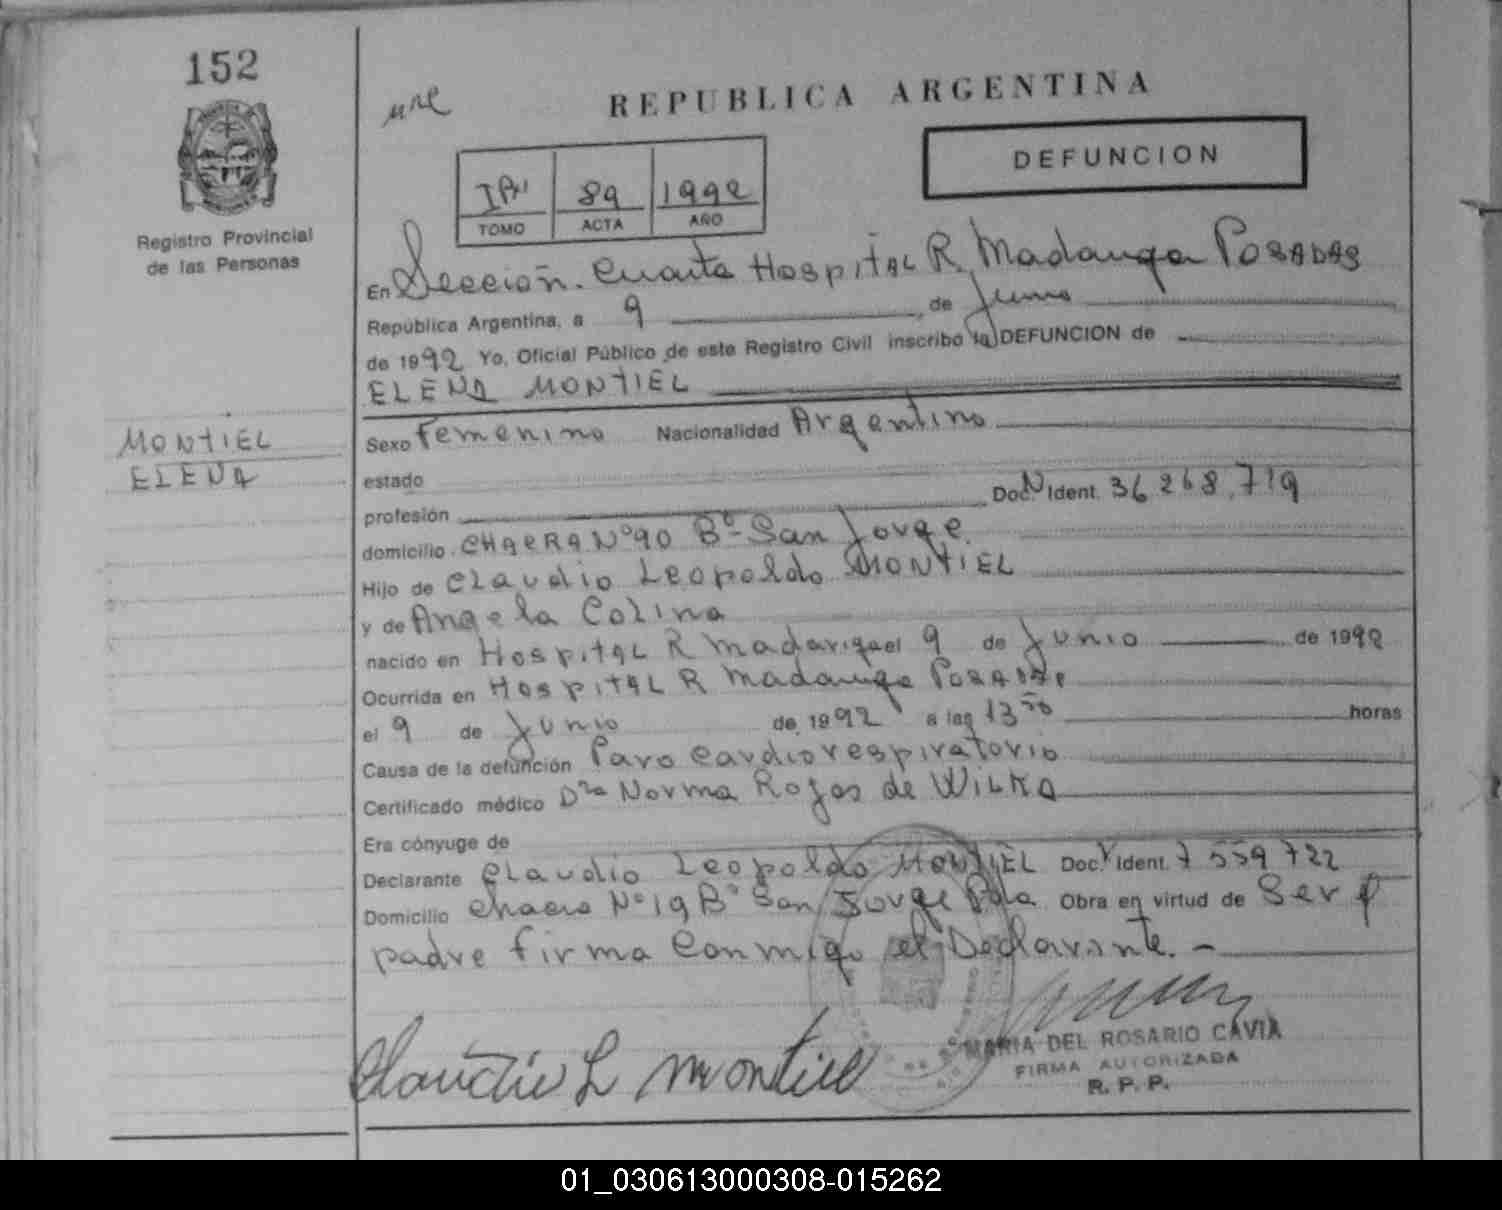 152
Registro Provincial
de las Personas
MONTIEL
ELENA
REPUBLICA ARGENTINA
DEFUNCION
89 1992
TOMO ACTA AÑO
En Sección Cuarta Hospital R. Madariaga POSADAS
República Argentina, a 9 de Junio
de 1992 Yo, Oficial Público de este Registro Civil inscribo la DEFUNCION de
ELENA MONTIEL
Sexo Femenino Nacionalidad Argentino
estado
profesión Doc. Ident. 36 268.719
domicilio CHACRA Nº 90 Bº San Jorge
Hijo de Claudio Leopoldo MONTIEL
y de Angela Colina
nacido en Hospital R Madariaga el 9 de Junio de 1992
Ocurrida en HOSPITAL R Madariaga POSADAS
el 9 de Junio de 1992 a las 13 50 horas
Causa de la defunción Paro Cardiorespiratorio
Certificado médico Dra Norma Rojas de
Era cónyuge de
Declarante Claudio Leopoldo MONTIEL Doc. Ident. 7 559 722
Domicilio Chacra Nº 19 Bº San Jorge Pdas Obra en virtud de Ser
padre firma Conmigo el Declarante. -
Claudio L Montiel
MARIA DEL ROSARIO CAVIA
FIRMA AUTORIZADA
R. P. P.
01_030613000308-015262